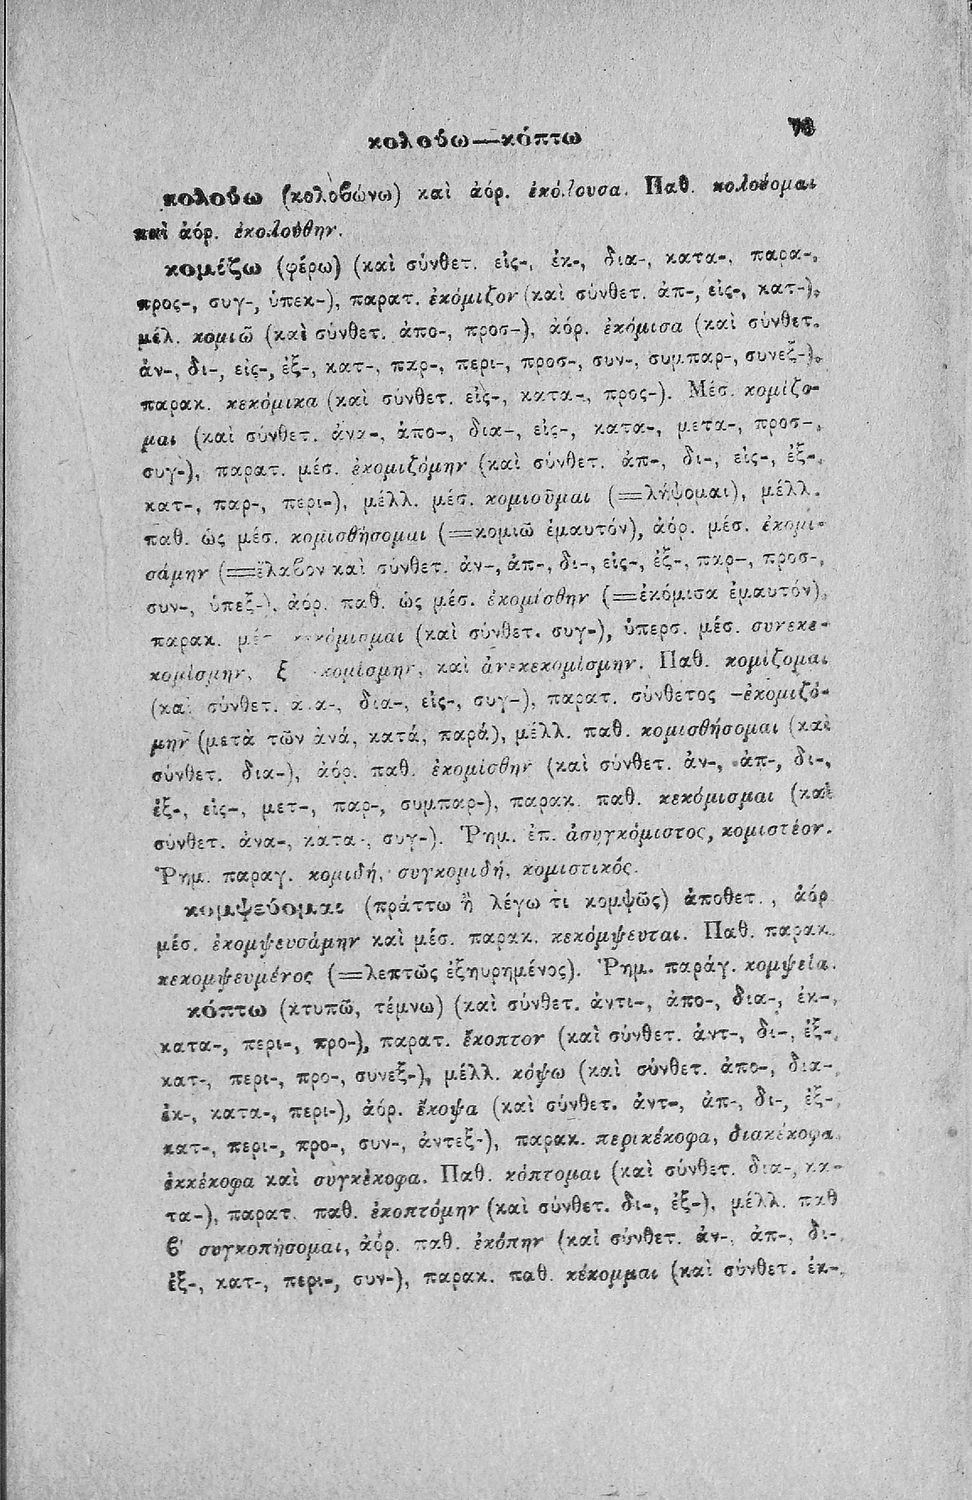 κολούω—κόπτω
κολούω (κολοβώνω) καὶ ἀόρ. ἐκόλουσα. Παθ. κολούομαι
καὶ ἀόρ. ἐκολούθην.
κομίζω (φέρω) (καὶ σύνθετ. εἰς-, ἐκ-, δια-, κατα-, παρα-,
προς-, συγ-, ὑπεκ-), παρατ. ἐκόμιζον (καὶ σύνθετ. ἀπ-, εἰς-, κατ-),
μέλ. κομιῶ (καὶ σύνθετ. ἀπο-, προσ-), ἀόρ. ἐκόμισα (καὶ σύνθετ.
ἀν-, δι-, εἰς-, ἐξ-, κατ-, παρ-, περι-, προσ-, συν-, συμπαρ-, συνεξ-),
παρακ. κεκόμικα (καὶ σύνθετ. εἰς-, κατα-, προς-). Μέσ. κομίζο-
μαι (καὶ σύνθετ. ἀνα-, ἀπο-, δια-, εἰς-, κατα-, μετα-, προσ-,
συγ-), παρατ. μέσ. ἐκομιζόμην (καὶ σύνθετ. ἀπ-, δι-, εἰς-, ἐξ-,
κατ-, παρ-, περι-), μέλλ. μέσ. κομιοῦμαι (=λήψομαι), μέλλ.
παθ. ὡς μέσ. κομισθήσομαι (=κομιῶ ἐμαυτόν), ἀόρ. μέσ. ἐκομι-
σάμην (=ἔλαβον καὶ σύνθετ. ἀν-, ἀπ-, δι-, εἰς-, ἐξ-, παρ-, προσ-,
συν-, ὑπεξ-), ἀόρ. παθ. ὡς μέσ. ἐκομίσθην (=ἐκόμισα ἐμαυτόν),
παρακ. κεκόμισμαι (καὶ σύνθετ. συγ-), ὑπερσ. μέσ. συνεκε-
κομίσμην, καὶ ἀνεκεκομίσμην. Παθ. κομίζομαι
(καὶ σύνθετ. δια-, εἰς-, συγ-), παρατ. σύνθετος -ἐκομιζό-
μην (μετὰ τῶν ἀνά, κατά, παρά), μέλλ. παθ. κομισθήσομαι (καὶ
σύνθετ. δια-), ἀόρ. παθ. ἐκομίσθην (καὶ σύνθετ. ἀν-, ἀπ-, δι-,
ἐξ-, εἰς-, μετ-, παρ-, συμπαρ-), παρακ. παθ. κεκόμισμαι (καὶ
σύνθετ. ἀνα-, κατα-, συγ-). Ῥημ. ἐπ. ἀσυγκόμιστος, κομιστέον.
Ῥημ. παραγ. κομιδή, συγκομιδή, κομιστικός.
κομψεύομαι (πράττω ἢ λέγω τι κομψῶς) ἀποθετ., ἀόρ
μέσ. ἐκομψευσάμην καὶ μέσ. παρακ. κεκόμψευται. Παθ. παρακ.
κεκομψευμένος (=λεπτῶς ἐξηυρημένος). Ῥημ. παράγ. κομψεία.
κόπτω (κτυπῶ, τέμνω) (καὶ σύνθετ. ἀντι-, ἀπο-, δια-, ἐκ-,
κατα-, περι-, προ-), παρατ. ἔκοπτον (καὶ σύνθετ. ἀντ-, δι-, ἐξ-,
κατ-, περι-, προ-, συνεξ-), μέλλ. κόψω (καὶ σύνθετ. ἀπο-, δια-,
ἐκ-, κατα-, περι-), ἀόρ. ἔκοψα (καὶ σύνθετ. ἀντ-, ἀπ-, δι-, ἐξ-,
κατ-, περι-, προ-, συν-, ἀντεξ-), παρακ. περικέκοφα, διακέκοφα,
ἐκκέκοφα καὶ συγκέκοφα. Παθ. κόπτομαι (καὶ σύνθετ. δια-, κα-
τα-), παρατ. παθ. ἐκοπτόμην (καὶ σύνθετ. δι-, ἐξ-), μέλλ. παθ
β' συγκοπήσομαι, ἀόρ. παθ. ἐκόπην (καὶ σύνθετ. ἀν-, ἀπ-, δι-,
ἐξ-, κατ-, περι-, συν-), παρακ. παθ. κέκομμαι (καὶ σύνθετ. ἐκ-,